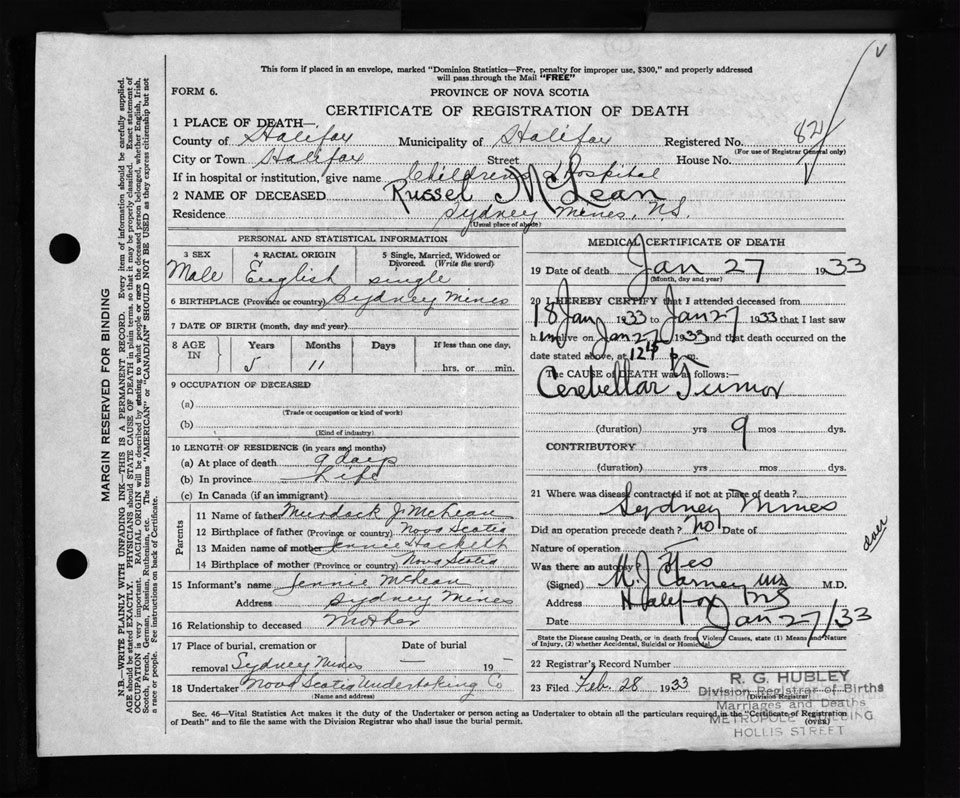 This form if placed in an envelope, marked "Dominion Statistics—Free, penalty for improper use, $300," and properly addressed
will pass through the Mail "FREE"
FORM 6.
PROVINCE OF NOVA SCOTIA
CERTIFICATE OF REGISTRATION OF DEATH
1 PLACE OF DEATH—,
County of Halifax Municipality of Halifax Registered No. 82
(For use of Registrar General only)
City or Town Halifax Street House No.
If in hospital or institution, give name Childrens Hospital
2 NAME OF DECEASED Russel McLean
Residence Sydney Mines, N.S.
(Usual place of abode)
PERSONAL AND STATISTICAL INFORMATION
3 SEX 4 RACIAL ORIGIN 5 Single, Married, Widowed or Divorced. (Write the word)
Male English single
6 BIRTHPLACE (Province or country) Sydney Mines
7 DATE OF BIRTH (month, day and year)
8 AGE IN Years Months Days If less than one day,
5 11 hrs. or min.
9 OCCUPATION OF DECEASED
(a)
(Trade or occupation or kind of work)
(b)
(Kind of industry)
10 LENGTH OF RESIDENCE (in years and months)
(a) At place of death 9 days
(b) In province Life
(c) In Canada (if an immigrant)
Parents
11 Name of father Murdock J. McLean
12 Birthplace of father (Province or country) Nova Scotia
13 Maiden name of mother Jennie Hackett
14 Birthplace of mother (Province or country) Nova Scotia
15 Informant's name Jennie McLean
Address Sydney Mines
16 Relationship to deceased Mother
17 Place of burial, cremation or Date of burial
removal Sydney Mines — 19 —
18 Undertaker Nova Scotia Undertaking Co
(Name and address)
MEDICAL CERTIFICATE OF DEATH
19 Date of death Jan 27 1933
(Month, day and year)
20 I HEREBY CERTIFY that I attended deceased from
18 Jan 1933 to Jan 27 1933 that I last saw
h im alive on Jan 27 1933 and that death occurred on the
date stated above, at 12 15 p. m.
The CAUSE of DEATH was as follows:—
Cerebellar Tumor
(duration) yrs 9 mos dys.
CONTRIBUTORY
(duration) yrs mos dys.
21 Where was disease contracted if not at place of death?
Sydney Mines
Did an operation precede death? No Date of
Nature of operation
Was there an autopsy? Yes
(Signed) M. J. Carney MD M.D.
Address Halifax NS
Date Jan 27/33
over
State the Disease causing Death, or in death from Violent Causes, state (1) Means and Nature
of Injury, (2) whether Accidental, Suicidal or Homicidal.
22 Registrar's Record Number
23 Filed Feb. 28 1933
(Division Registrar)
R. G. HUBLEY
Division Registrar of Births
Marriages and Deaths
HOLLIS STREET
Sec. 46—Vital Statistics Act makes it the duty of the Undertaker or person acting as Undertaker to obtain all the particulars required in the "Certificate of Registration
of Death" and to file the same with the Division Registrar who shall issue the burial permit.
(OVER)
MARGIN RESERVED FOR BINDING
N.B.—WRITE PLAINLY WITH UNFADING INK—THIS IS A PERMANENT RECORD. Every item of information should be carefully supplied.
AGE should be stated EXACTLY. PHYSICIANS should STATE CAUSE OF DEATH in plain terms, so that it may be properly classified. Exact statement of
OCCUPATION is very important. RACIAL ORIGIN will be described by stating to what people or race the deceased person belonged, whether English, Irish,
Scotch, French, German, Russian, Ruthenian, etc. The terms "AMERICAN" or "CANADIAN" SHOULD NOT BE USED as they express citizenship but not
a race or people. See instructions on back of Certificate.